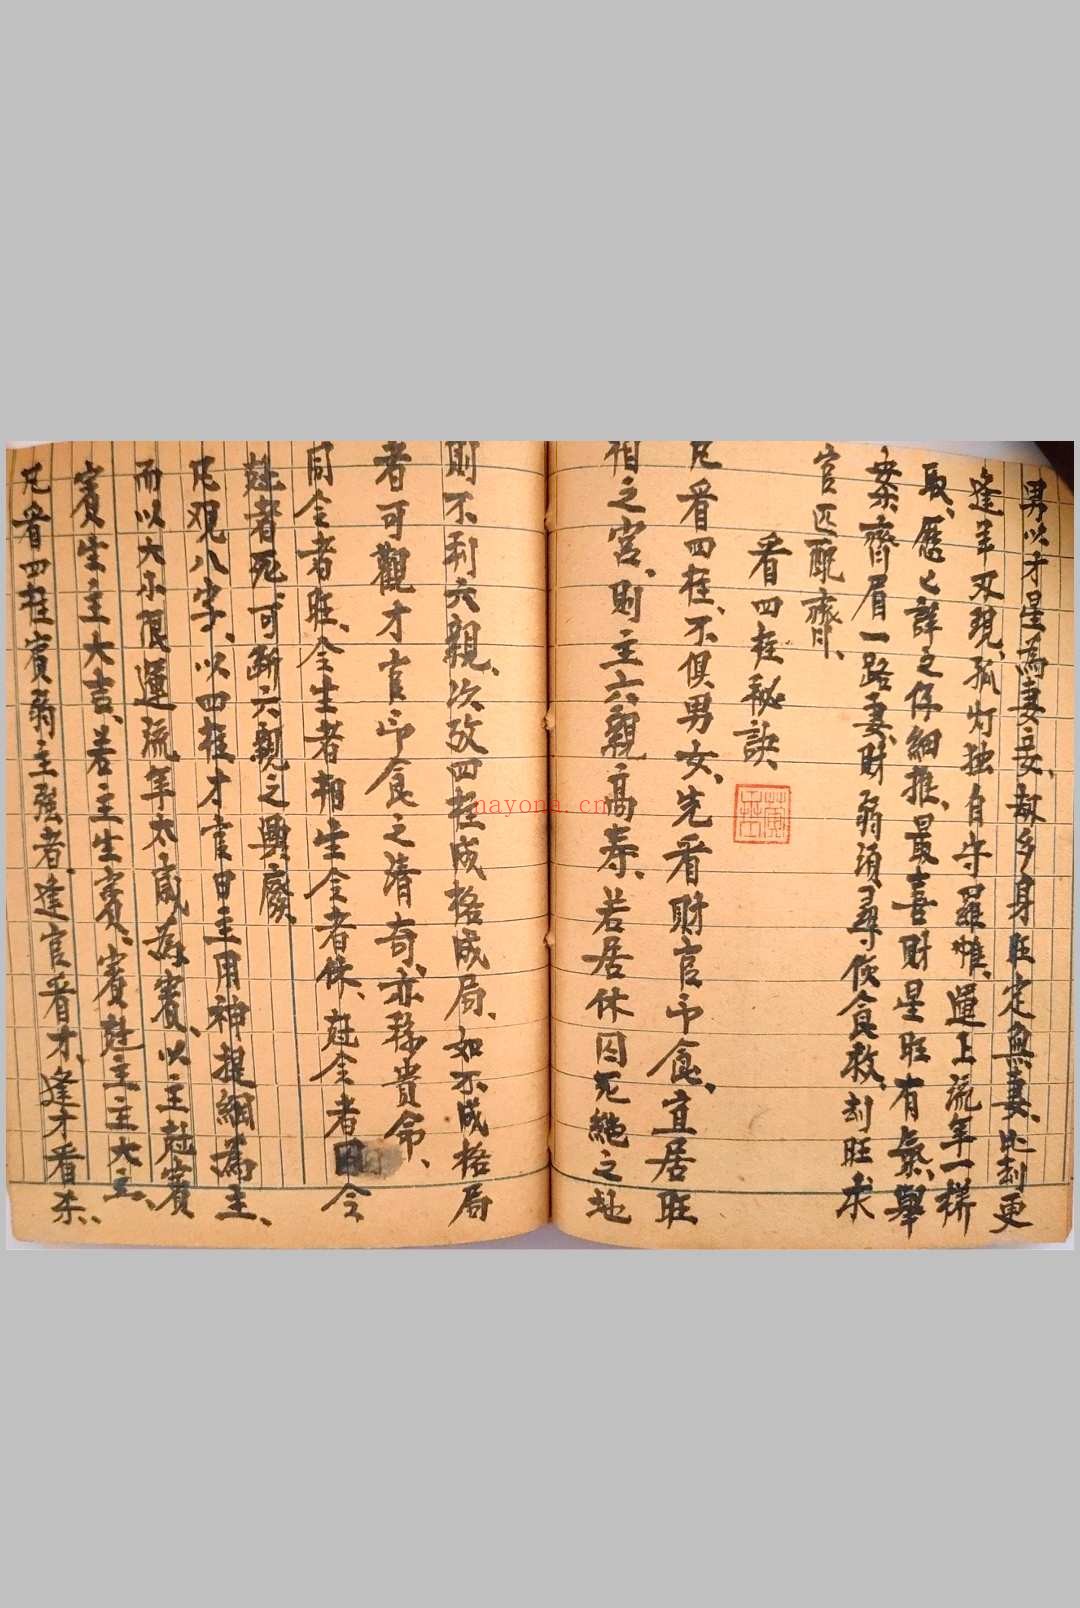 男以才星為妻妾、劫多身旺定無妻、比刦更
逢羊刃現、孤灯独自守羅帷、運上流年一樣
取、應之詳之仔細推、最喜財星旺有氣、舉
案齊眉一路妻、財弱須尋傷食救、刦旺求
官匹配齊、
看四柱秘訣
凡看四柱、不俱男女、先看財官印食、宜居旺
相之宮、則主六親高寿、若居休囚死絕之地
則不利六親、次攷四柱成格成局、如不成格局
者可觀才官印食之清奇、亦移貴命、
同令者旺、令生者相、生令者休、尅令者囚、令
尅者死、可断六親之興廢、
凡观八字、以四柱才官日主用神提綱為主、
而以大小限運流年太歲為賓、以主尅賓
賓生主大吉、若主生賓、賓尅主主大忌、
凡看四柱賓弱主強者、逢官看才、逢才看杀、
nayona.cn